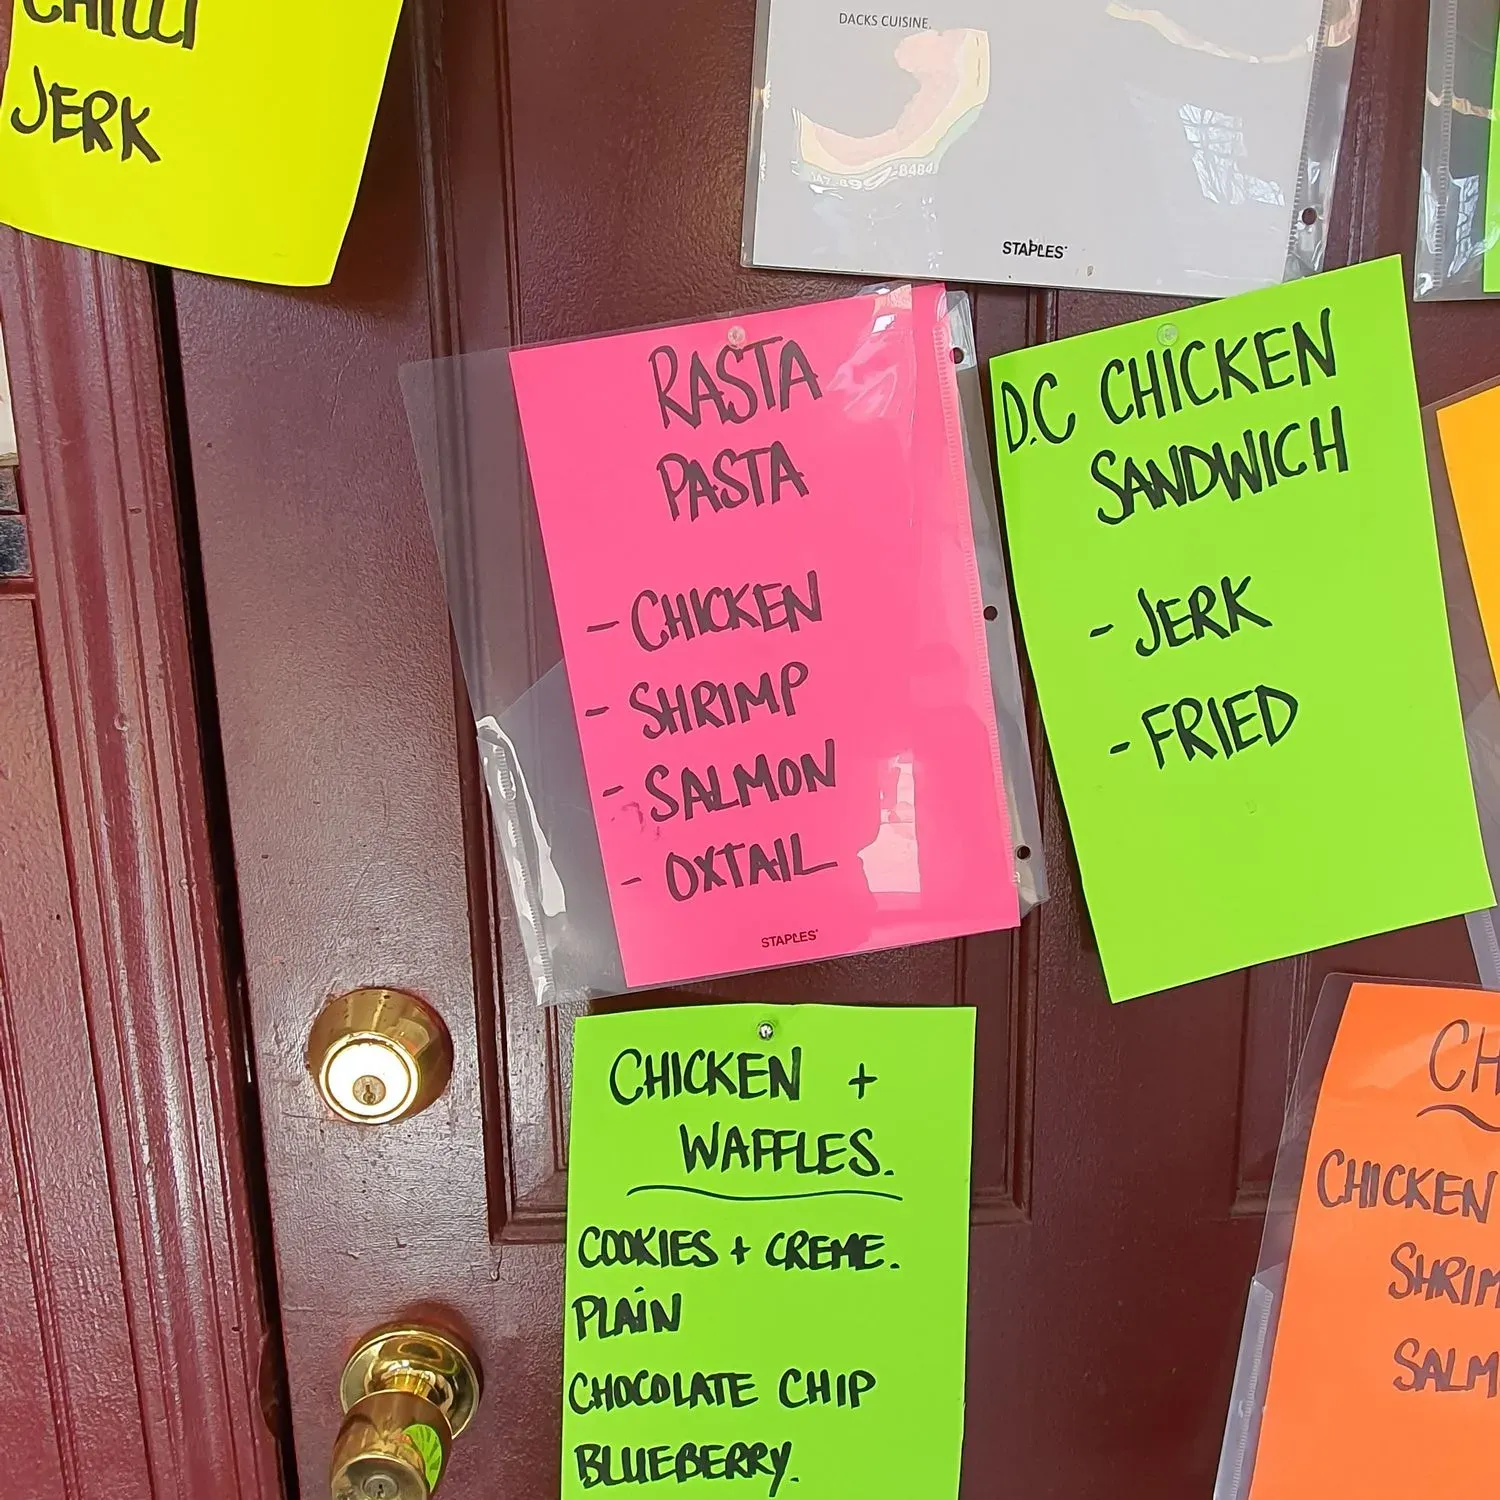 CHILLI
JERK
DACKS CUISINE.
-8484
STAPLES
RASTA
PASTA
- CHICKEN
- SHRIMP
- SALMON
- OXTAIL
STAPLES
D.C CHICKEN
SANDWICH
- JERK
- FRIED
CHICKEN +
WAFFLES.
COOKIES + CREME.
PLAIN
CHOCOLATE CHIP
BLUEBERRY.
CHICKEN